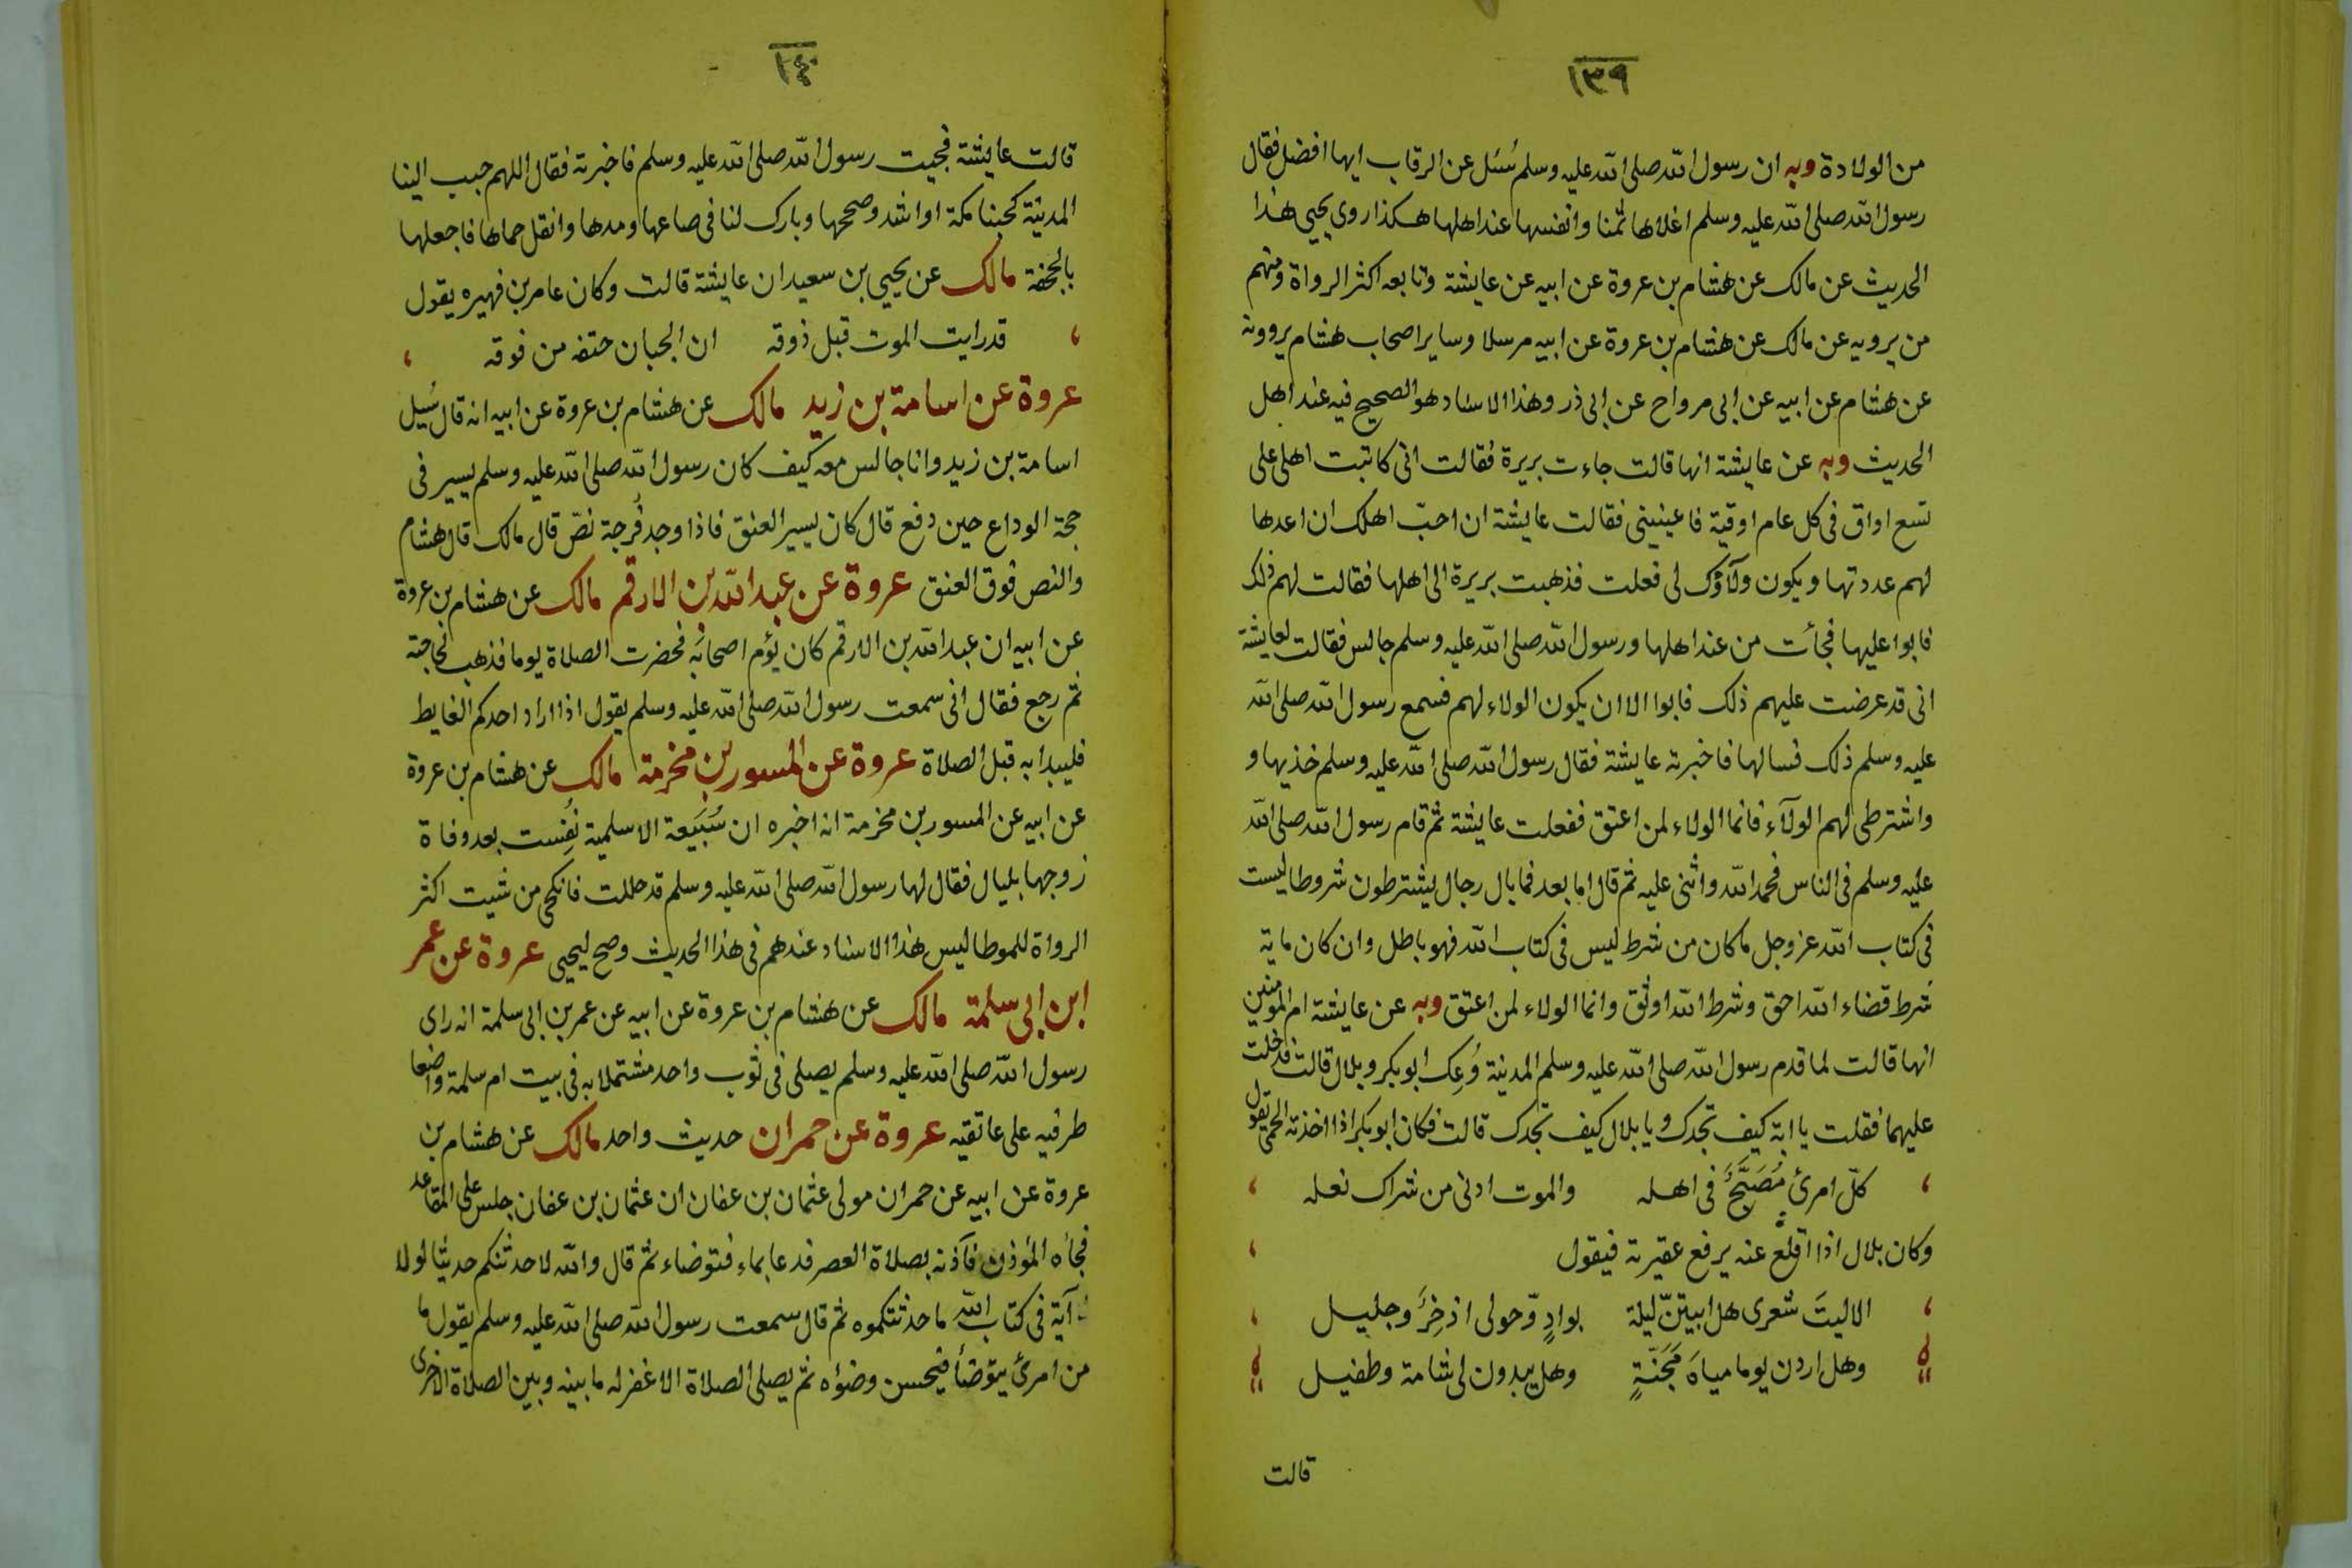 ١٣٩
من الولادة وبه ان رسول الله صلى الله عليه وسلم سُئل عن الرقاب ايها افضل فقال
رسول الله صلى الله عليه وسلم اغلاها ثمنا وانفسها عند اهلها هكذا روى يحيي هذا
الحديث عن مالك عن هشام بن عروة عن ابيه عن عايشة وتابعه اكثر الرواة ومنهم
من يرويه عن مالك عن هشام بن عروة عن ابيه مرسلا وساير اصحاب هشام يروونه
عن هشام عن ابيه عن ابى مرواح عن ابى ذر وهذا الاسناد هو الصحيح فيه عند اهل
الحديث وبه عن عايشة انها قالت جاءت بريرة فقالت انى كاتبت اهلى على
تسع اواق فى كل عام اوقية فاعينينى فقالت عايشة ان احبّ اهلك ان اعدها
لهم عددتها ويكون ولآؤك لى فعلت فذهبت بريرة الى اهلها فقالت لهم ذلك
فابوا عليها فجأت من عند اهلها ورسول الله صلى الله عليه وسلم جالس فقالت لعايشة
انى قد عرضت عليهم ذلك فابوا الا ان يكون الولاء لهم فسمع رسول الله صلى الله
عليه وسلم ذلك فسالها فاخبرته عايشة فقال رسول الله صلى الله عليه وسلم خذيها و
واشترطى لهم الولآء فانما الولاء لمن اعتق ففعلت عايشة ثم قام رسول الله صلى الله
عليه وسلم فى الناس فحمد الله واثنى عليه ثم قال اما بعد فما بال رجال يشترطون شروطا ليست
فى كتاب الله عز وجل ما كان من شرط ليس فى كتاب الله فهو باطل وان كان ماية
شرط قضاء الله احق وشرط الله اوثق وانما الولاء لمن اعتق وبه عن عايشة ام المومنين
انها قالت لما قدم رسول الله صلى الله عليه وسلم المدينة وُعِك ابو بكر وبلال قالت فدخلت
عليهما فقلت يا ابة كيف تجدك ويا بلال كيف تجدك قالت فكان ابو بكر اذا اخذته الحمى يقول
، كلّ امرئ مُصَبَّحٌ فى اهله والموت ادنى من شراك نعله ،
وكان بلال اذا اقلع عنه يرفع عقيرته فيقول ،
، الا ليتَ شعرى هل ابيتنّ ليلة بوادٍ وّحولى اذخِرٌ وجليل ،
وهل اردن يوما مياهَ مَجَنّةٍ وهل يبدون لى شامة وطفيل
قالت
١٤٠
قالت عايشة فجيت رسول الله صلى الله عليه وسلم فاخبرته فقال اللهم حبب الينا
المدينة كحبنا مكة او اشد وصححها وبارك لنا فى صاعها ومدها وانقل حماها فاجعلها
بالجحفة مالك عن يحيي بن سعيد ان عايشة قالت وكان عامر بن فهيره يقول
، قد رايت الموت قبل ذوقه ان الجبان حتفه من فوقه ،
عروة عن اسامة بن زيد مالك عن هشام بن عروة عن ابيه انه قال سُيل
اسامة بن زيد وانا جالس معه كيف كان رسول الله صلى الله عليه وسلم يسير فى
حجة الوداع حين دفع قال كان يسير العنق فاذا وجد فُرجة نصّ قال مالك قال هشام
والنص فوق العنق عروة عن عبد الله بن الارقم مالك عن هشام بن عروة
عن ابيه ان عبد الله بن الارقم كان يؤم اصحابه فحضرت الصلاة يوما فذهب لحاجته
ثم رجع فقال انى سمعت رسول الله صلى الله عليه وسلم يقول اذا اراد احدكم الغايط
فليبدا به قبل الصلاة عروة عن المسور بن مخرمة مالك عن هشام بن عروة
عن ابيه عن المسور بن مخرمة انه اخبره ان سُبَيعة الاسلمية نُفِست بعد وفاة
زوجها بليال فقال لها رسول الله صلى الله عليه وسلم قد حللت فانكحى من شيت اكثر
الرواة للموطا ليس هذا الاسناد عندهم فى هذا الحديث وصح ليحيى عروة عن عمر
ابن ابى سلمة مالك عن هشام بن عروة عن ابيه عن عمر بن ابى سلمة انه راى
رسول الله صلى الله عليه وسلم يصلى فى ثوب واحد مشتملا به فى بيت ام سلمة واضعا
طرفيه على عاتقيه عروة عن حمران حديث واحد مالك عن هشام بن
عروة عن ابيه عن حمران مولى عثمان بن عفان ان عثمان بن عفان جلس على المقاعد
فجاه المؤذن فآذنه بصلاة العصر فدعا بماء فتوضاء ثم قال والله لاحدثنكم حديثا لولا
آية فى كتاب الله ما حدثتكموه ثم قال سمعت رسول الله صلى الله عليه وسلم يقول ما
من امرئ يتوضأ فيحسن وضؤه ثم يصلى الصلاة الا غفر له ما بينه وبين الصلاة الاخرى